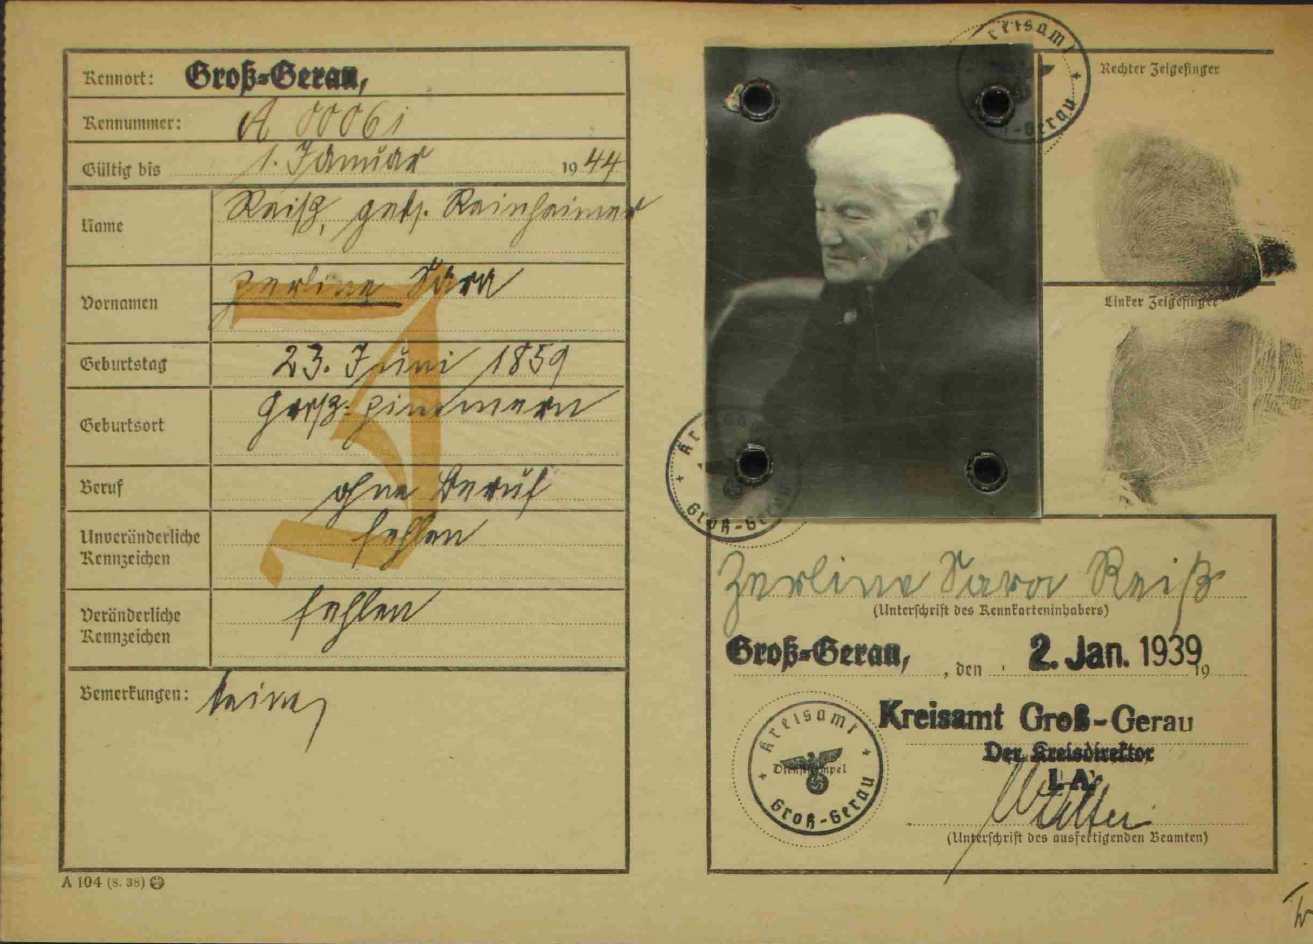 Kennort: Groß-Gerau,
Kennummer: A 00061
Gültig bis 1. Januar 1944
Name Reiß, geb. Reinheimer
Vornamen Zerline Sara
Geburtstag 23. Juni 1859
Geburtsort Groß-Zimmern
Beruf ohne Beruf
Unveränderliche
Kennzeichen fehlen
Veränderliche
Kennzeichen fehlen
Bemerkungen: keine
J
A 104 (8. 38)
Kreisamt
Groß-Gerau
Rechter Zeigefinger
Linker Zeigefinger
Kreisamt
Groß-Gerau
Zerline Sara Reiß
(Unterschrift des Kennkarteninhabers)
Groß-Gerau, , den 2. Jan. 1939 19
Kreisamt Groß-Gerau
Der Kreisdirektor
I. A.
Kreisamt
Dienststempel
Groß-Gerau
(Unterschrift des ausfertigenden Beamten)